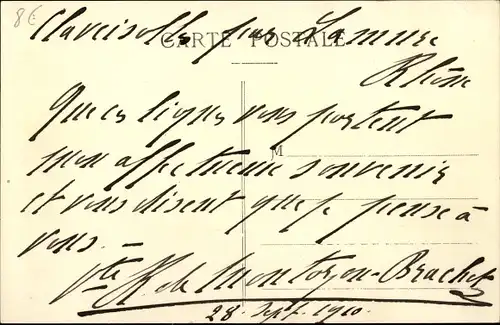 8€
Claveisolles par Lamure
CARTE POSTALE
Rhône
Que ces lignes vous portent
M
mon affectueux souvenir
et vous disent que je pense à
vous. —
Vte H. de Montozon-Brachet
28 Sept. 1910.